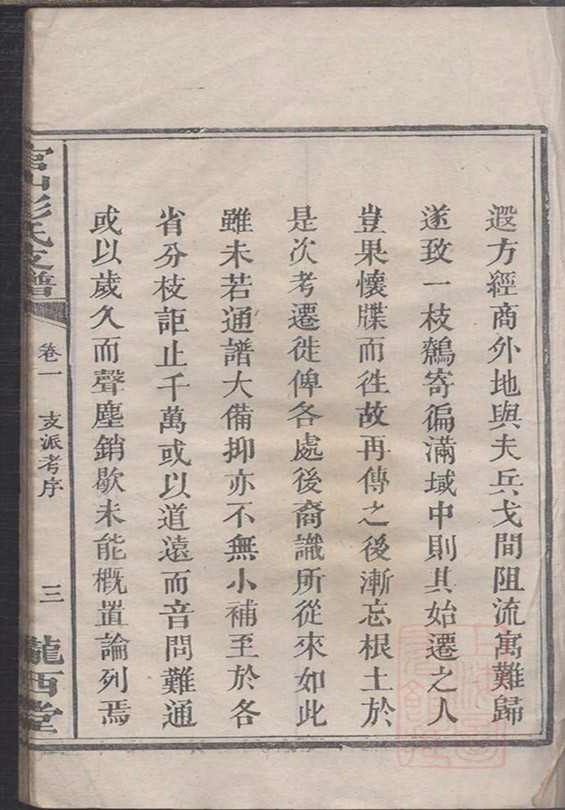 遐方經商外地與夫兵戈間阻流寓難歸
遂致一枝鷦寄徧滿域中則其始遷之人
豈果懷牒而徃故再傳之後漸忘根土於
是次考遷徙俾各處後裔識所從來如此
雖未若通譜大備抑亦不無小補至於各
省分枝詎止千萬或以道遠而音問難通
或以歲久而聲塵銷歇未能概置論列焉
官山彭氏支譜
卷一 支派考序 三
隴西堂